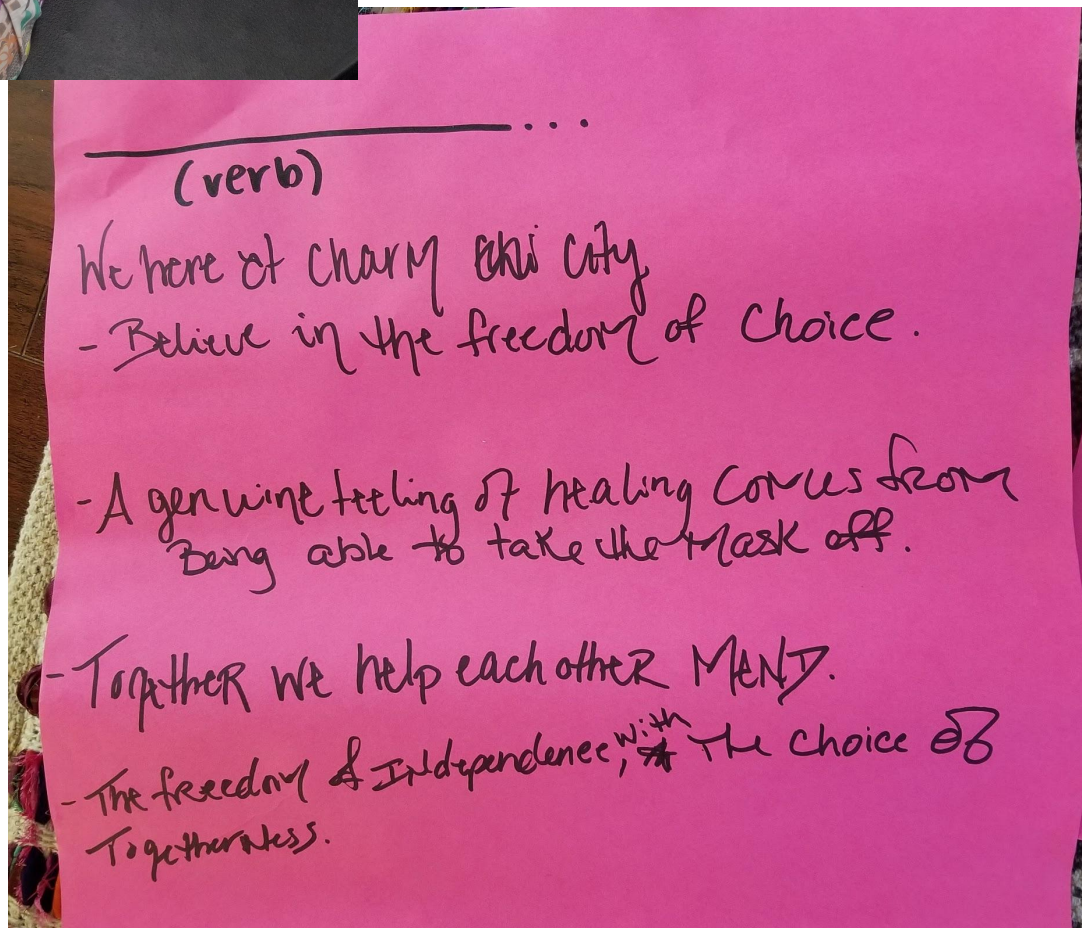 ________...
(verb)
We here at Charm City
- Believe in the freedom of choice.
- A genuine feeling of healing comes from
Being able to take the Mask off.
- Together we help each other MEND.
- The freedom of Independence, with The choice of
Togetherness.